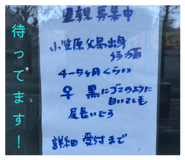 里親募集中
小笠原父島出身
4~5ヶ月くらい
♀ 黒にゴマのように
白いさし毛
尾長いです
詳細 受付まで
待ってます!